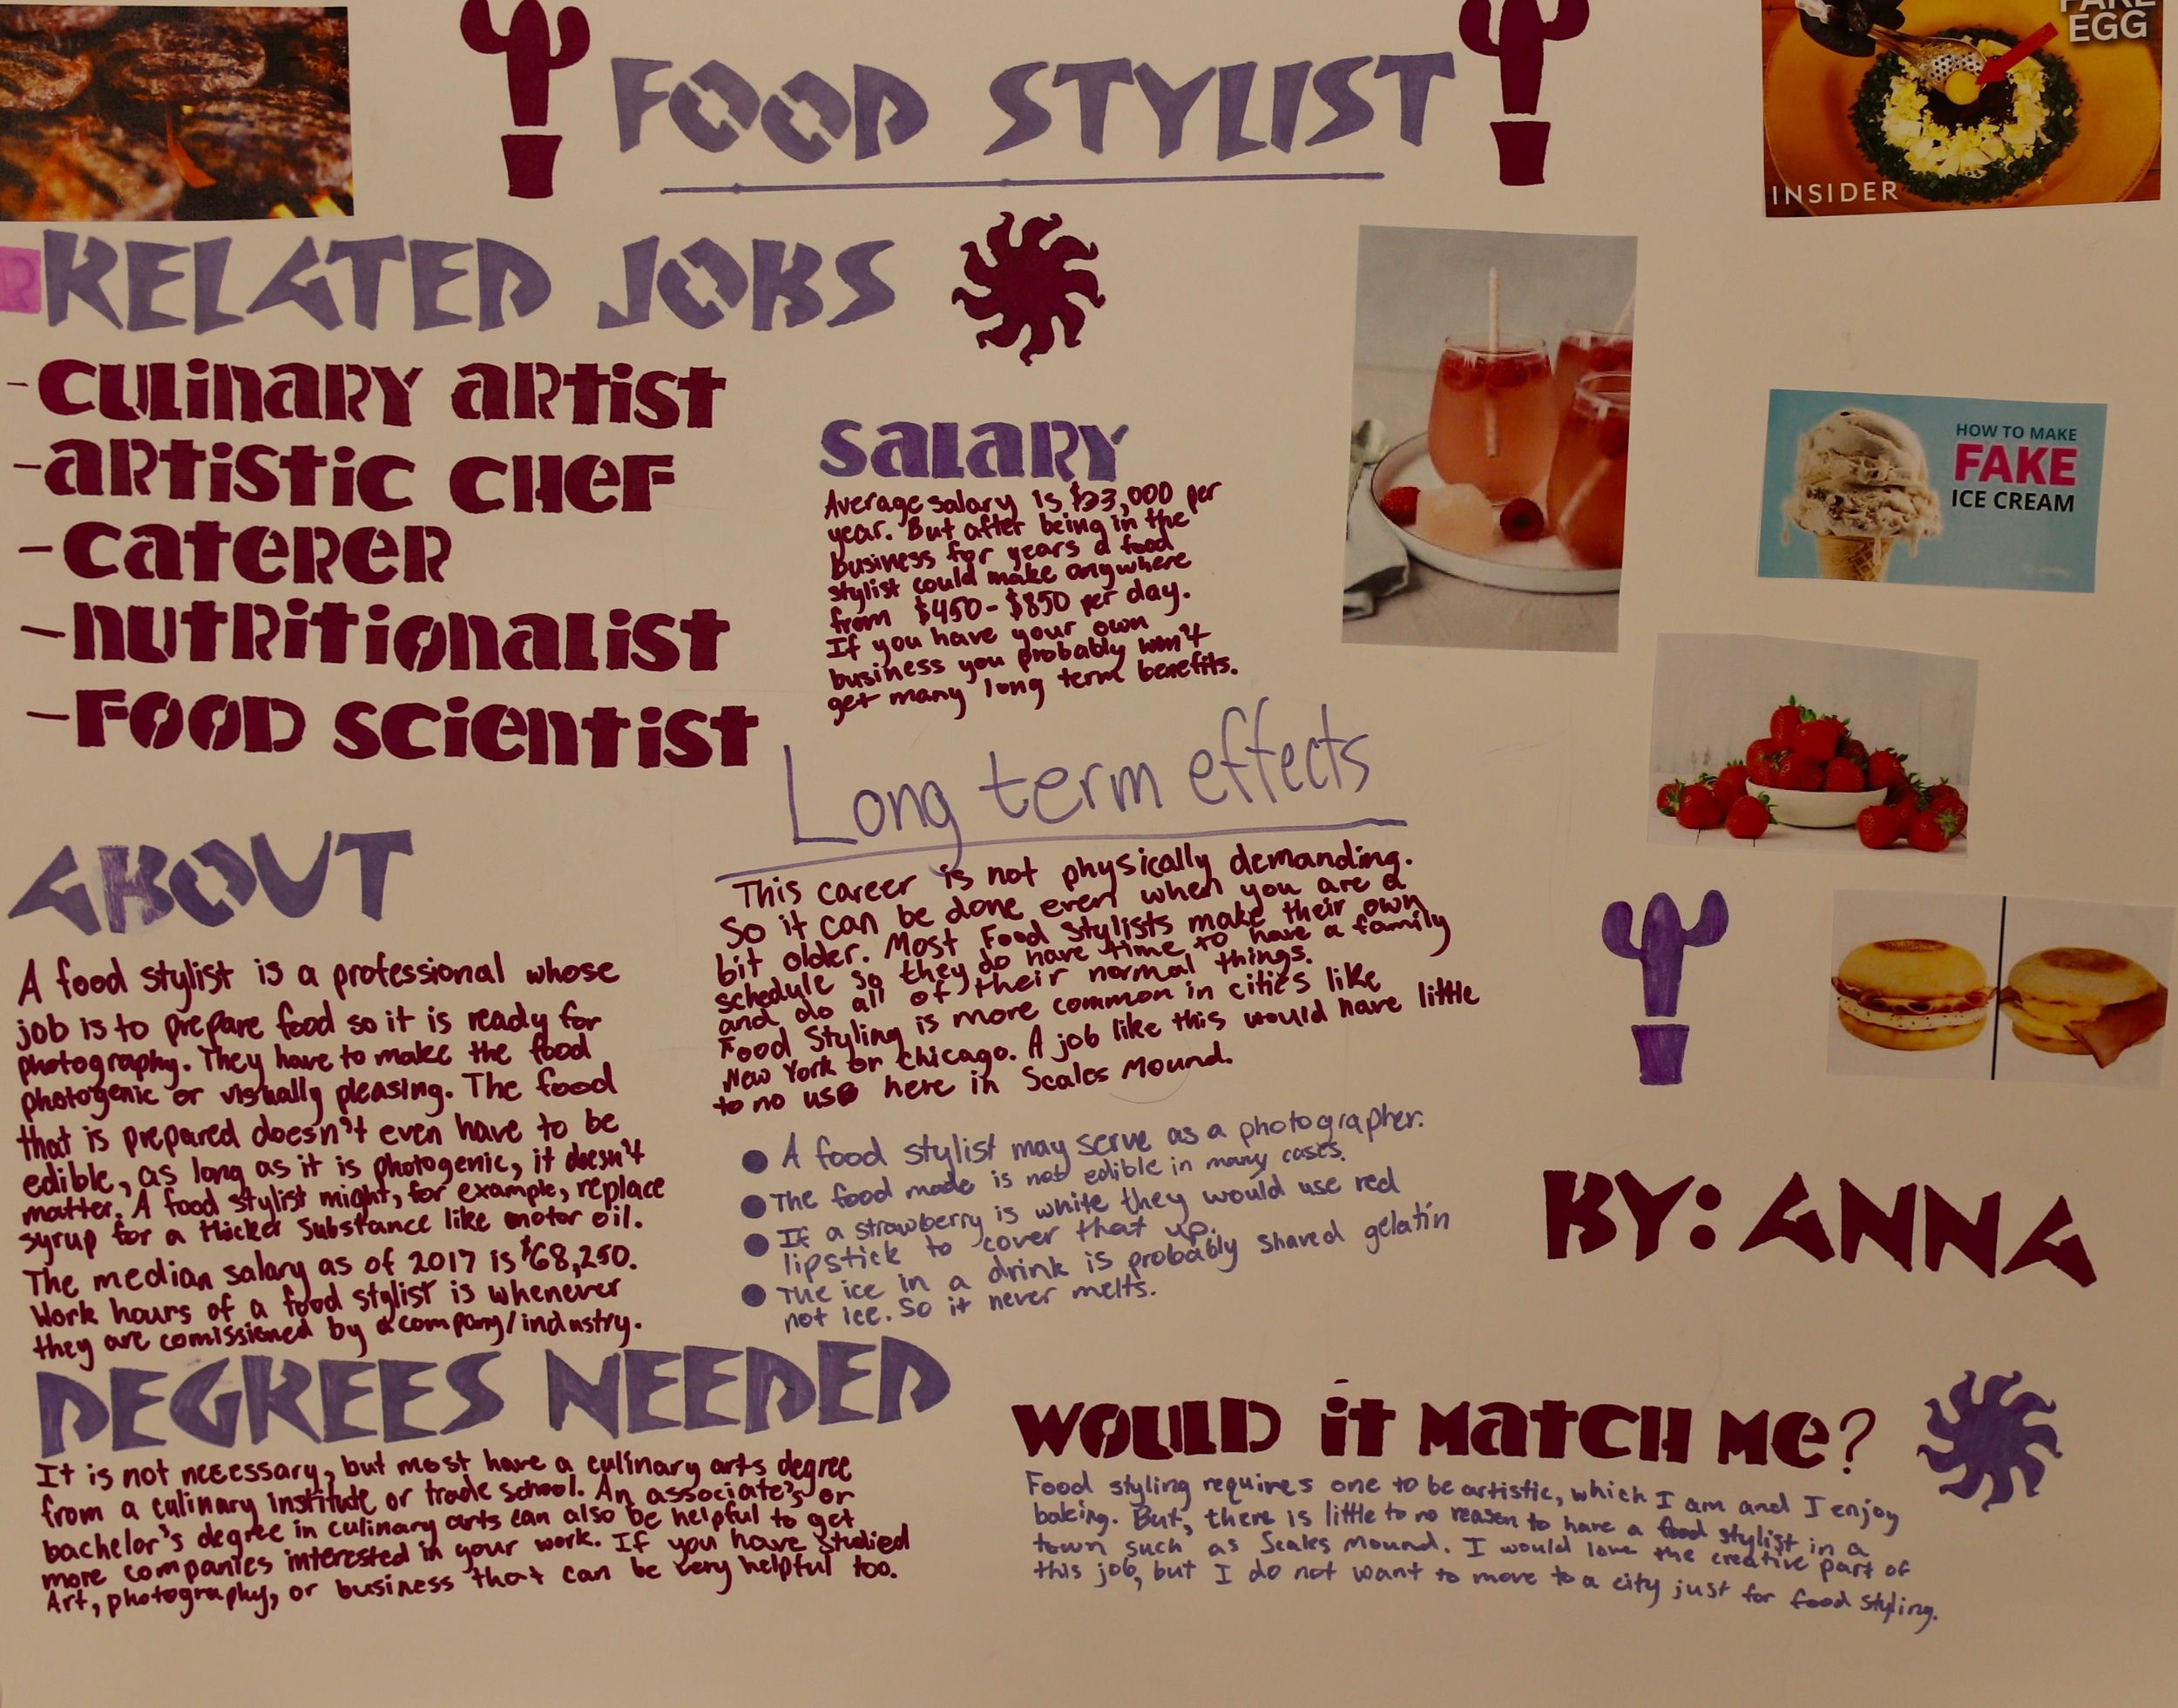 FOOD STYLIST
FAKE
EGG
INSIDER
RELATED JOBS
-CULINARY ARTIST
-ARTISTIC CHEF
-CATERER
-NUTRITIONALIST
-FOOD SCIENTIST
SALARY
Average salary is $23,000 per
year. But after being in the
business for years a food
stylist could make anywhere
from $450-$850 per day.
If you have your own
business you probably won't
get many long term benefits.
HOW TO MAKE
FAKE
ICE CREAM
ABOUT
A food stylist is a professional whose
job is to prepare food so it is ready for
photography. They have to make the food
photogenic or visually pleasing. The food
that is prepared doesn't even have to be
edible, as long as it is photogenic, it doesn't
matter. A food stylist might, for example, replace
syrup for a thicker substance like motor oil.
The median salary as of 2017 is $68,250.
Work hours of a food stylist is whenever
they are comissioned by a company/industry.
Long term effects
This career is not physically demanding.
So it can be done even when you are a
bit older. Most Food Stylists make their own
schedule so they do have time to have a family
and do all of their normal things.
Food Styling is more common in cities like
New York or Chicago. A job like this would have little
to no use here in Scales Mound.
• A food stylist may serve as a photographer.
• The food made is not edible in many cases.
• If a strawberry is white they would use red
lipstick to cover that up.
• The ice in a drink is probably shaved gelatin
not ice. So it never melts.
BY: ANNA
DEGREES NEEDED
It is not necessary, but most have a culinary arts degree
from a culinary institute or trade school. An associate's or
bachelor's degree in culinary arts can also be helpful to get
more companies interested in your work. If you have studied
Art, photography, or business that can be very helpful too.
WOULD IT MATCH ME?
Food styling requires one to be artistic, which I am and I enjoy
baking. But, there is little to no reason to have a food stylist in a
town such as Scales Mound. I would love the creative part of
this job, but I do not want to move to a city just for food styling.